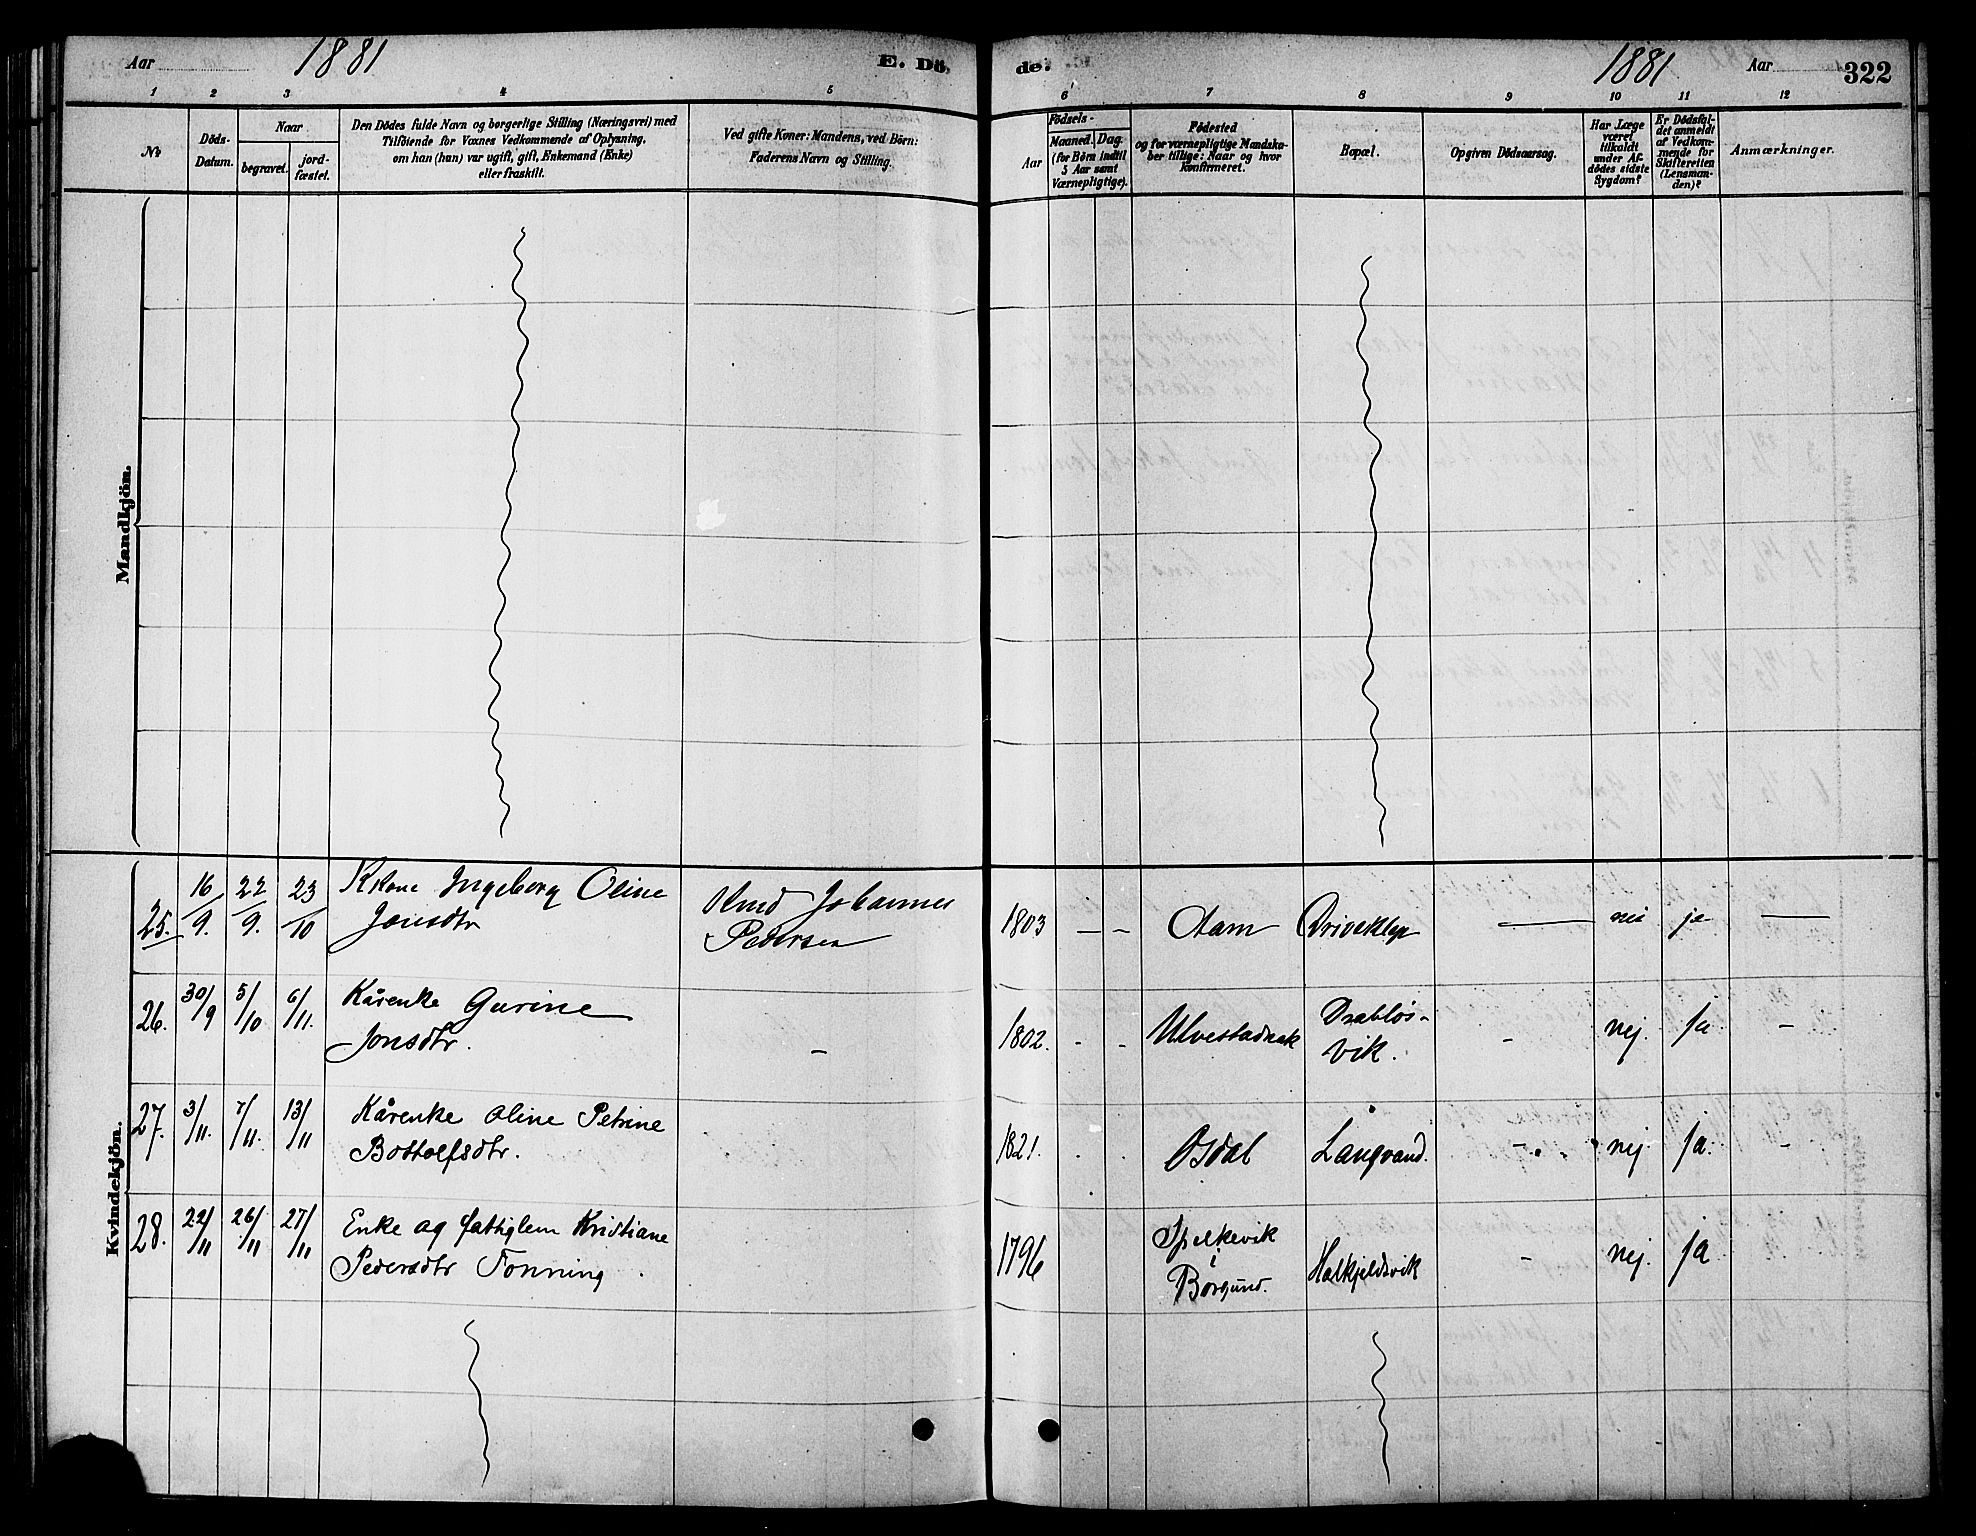 Aar 1881 E. Dö de. 1881 Aar 322
1 2 3 4 5 6 7 8 9 10 11 12
№
Döds-Datum.
Naar
begravet.
jord-fæstet.
Den Dödes fulde Navn og borgerlige Stilling (Næringsvei) med
Tilföiende for Voxnes Vedkommende af Oplysning,
om han (hun) var ugift, gift, Enkemand (Enke)
eller fraskilt.
Ved gifte Koner: Mandens, ved Börn:
Faderens Navn og Stilling.
Födsels-
Aar
Maaned. Dag.
(for Börn indtil
5 Aar samt
Værnepligtige).
Födested
og for værnepligtige Mandska-
ber tillige: Naar og hvor
konfirmeret.
Bopæl.
Opgiven Dödsaarsag.
Har Læge
været
tilkaldt
under Af-
dödes sidste
Sygdom?
Er Dödsfal-
det anmeldt
af Vedkom-
mende for
Skifteretten
(Lensman-
den)?
Anmærkninger.
Mandkjön.
Kvindekjön.
25. 16/9. 22/9. 23/10 Kkone Ingeborg Oline
Jonsdtr
Johannes
Pedersen
1803 — - Aam Driveklep — nei ja —
26. 30/9 5/10 6/11. Kårenke Gurine
Jonsdtr.
–
1802. - - Ulvestadnak Drabløs-
vik.
- nej. ja -
27. 3/11. 7/11. 13/11 Kårenke Oline Petrine
Bottolfsdtr.
1821. . . Osdal Langvand. - nej. ja. -
28. 22/11 26/11 27/11 Enke og fattiglem Kristiane
Pedersdtr Fonning
1796 Spelkevik
i
Borgund.
Halkjeldsvik - nej. ja